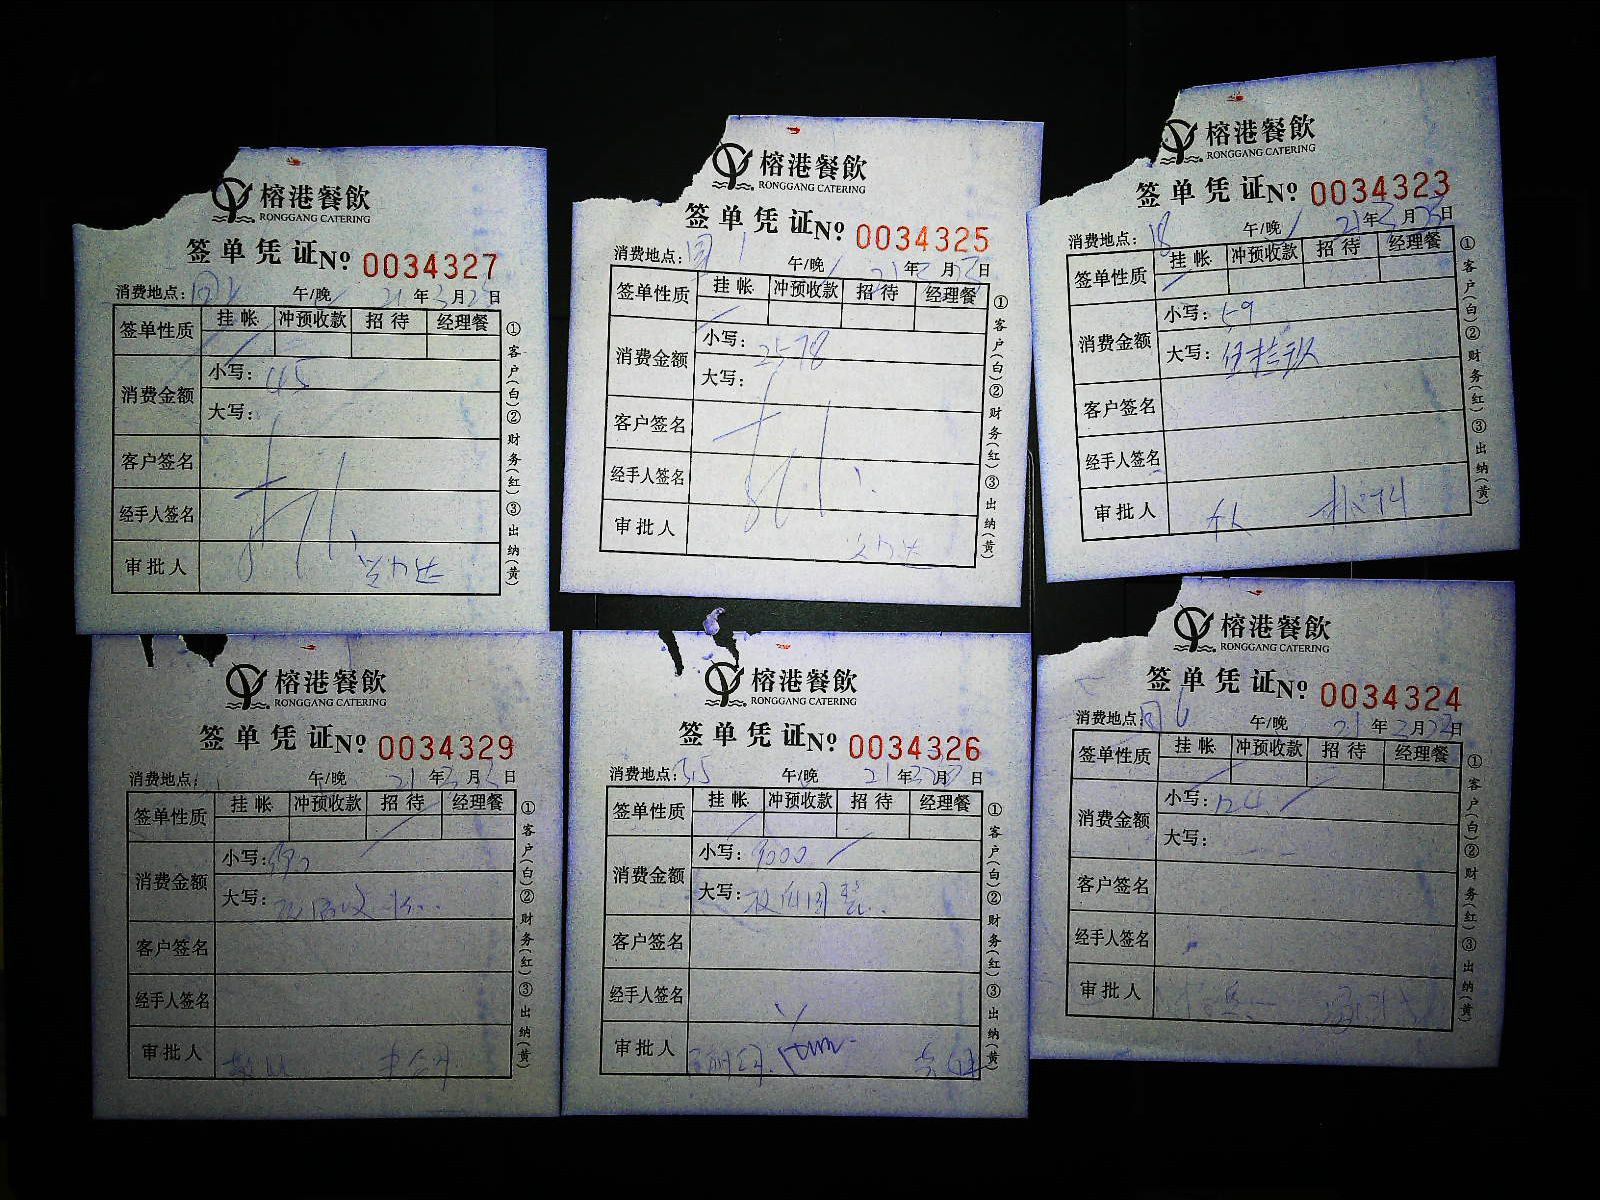 榕港餐飲
RONGGANG CATERING
签单凭证 Nº 0034327
消费地点: 午/晚 21年3月25日
签单性质 挂帐 冲预收款 招待 经理餐
消费金额 小写: 45
大写:
客户签名
经手人签名
审批人
①客户(白)②财务(红)③出纳(黄)
榕港餐飲
RONGGANG CATERING
签单凭证 Nº 0034325
消费地点: 午/晚 21年 月 日
签单性质 挂帐 冲预收款 招待 经理餐
消费金额 小写: 2578
大写:
客户签名
经手人签名
审批人
①客户(白)②财务(红)③出纳(黄)
榕港餐飲
RONGGANG CATERING
签单凭证 Nº 0034323
消费地点: 18 午/晚 21年3月25日
签单性质 挂帐 冲预收款 招待 经理餐
消费金额 小写: 59
大写: 伍拾玖
客户签名
经手人签名
审批人
①客户(白)②财务(红)③出纳(黄)
榕港餐飲
RONGGANG CATERING
签单凭证 Nº 0034329
消费地点: 午/晚 21年3月 日
签单性质 挂帐 冲预收款 招待 经理餐
消费金额 小写:
大写:
客户签名
经手人签名
审批人
①客户(白)②财务(红)③出纳(黄)
榕港餐飲
RONGGANG CATERING
签单凭证 Nº 0034326
消费地点: 午/晚 21年 月 日
签单性质 挂帐 冲预收款 招待 经理餐
消费金额 小写: 9000
大写:
客户签名
经手人签名
审批人
①客户(白)②财务(红)③出纳(黄)
榕港餐飲
RONGGANG CATERING
签单凭证 Nº 0034324
消费地点: 午/晚 21年3月 日
签单性质 挂帐 冲预收款 招待 经理餐
消费金额 小写: 124
大写:
客户签名
经手人签名
审批人
①客户(白)②财务(红)③出纳(黄)